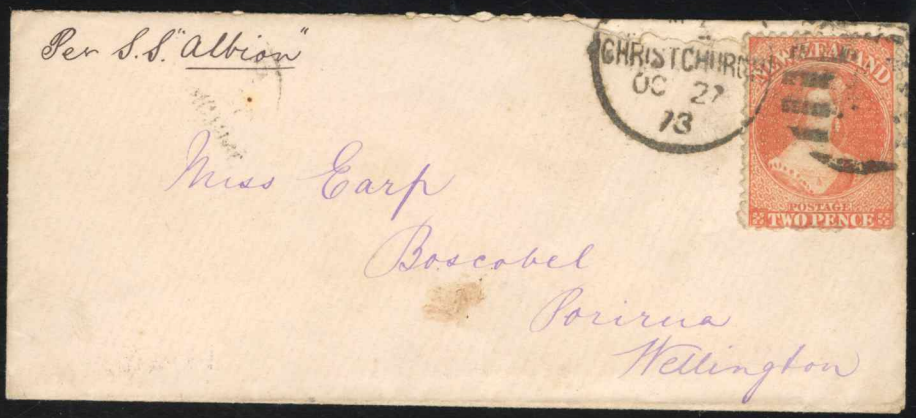 Per S.S. "Albion"
CHRISTCHURCH
OC 27
73
NEW ZEALAND
POSTAGE
TWO PENCE
Miss Earp
Boscobel
Porirua
Wellington